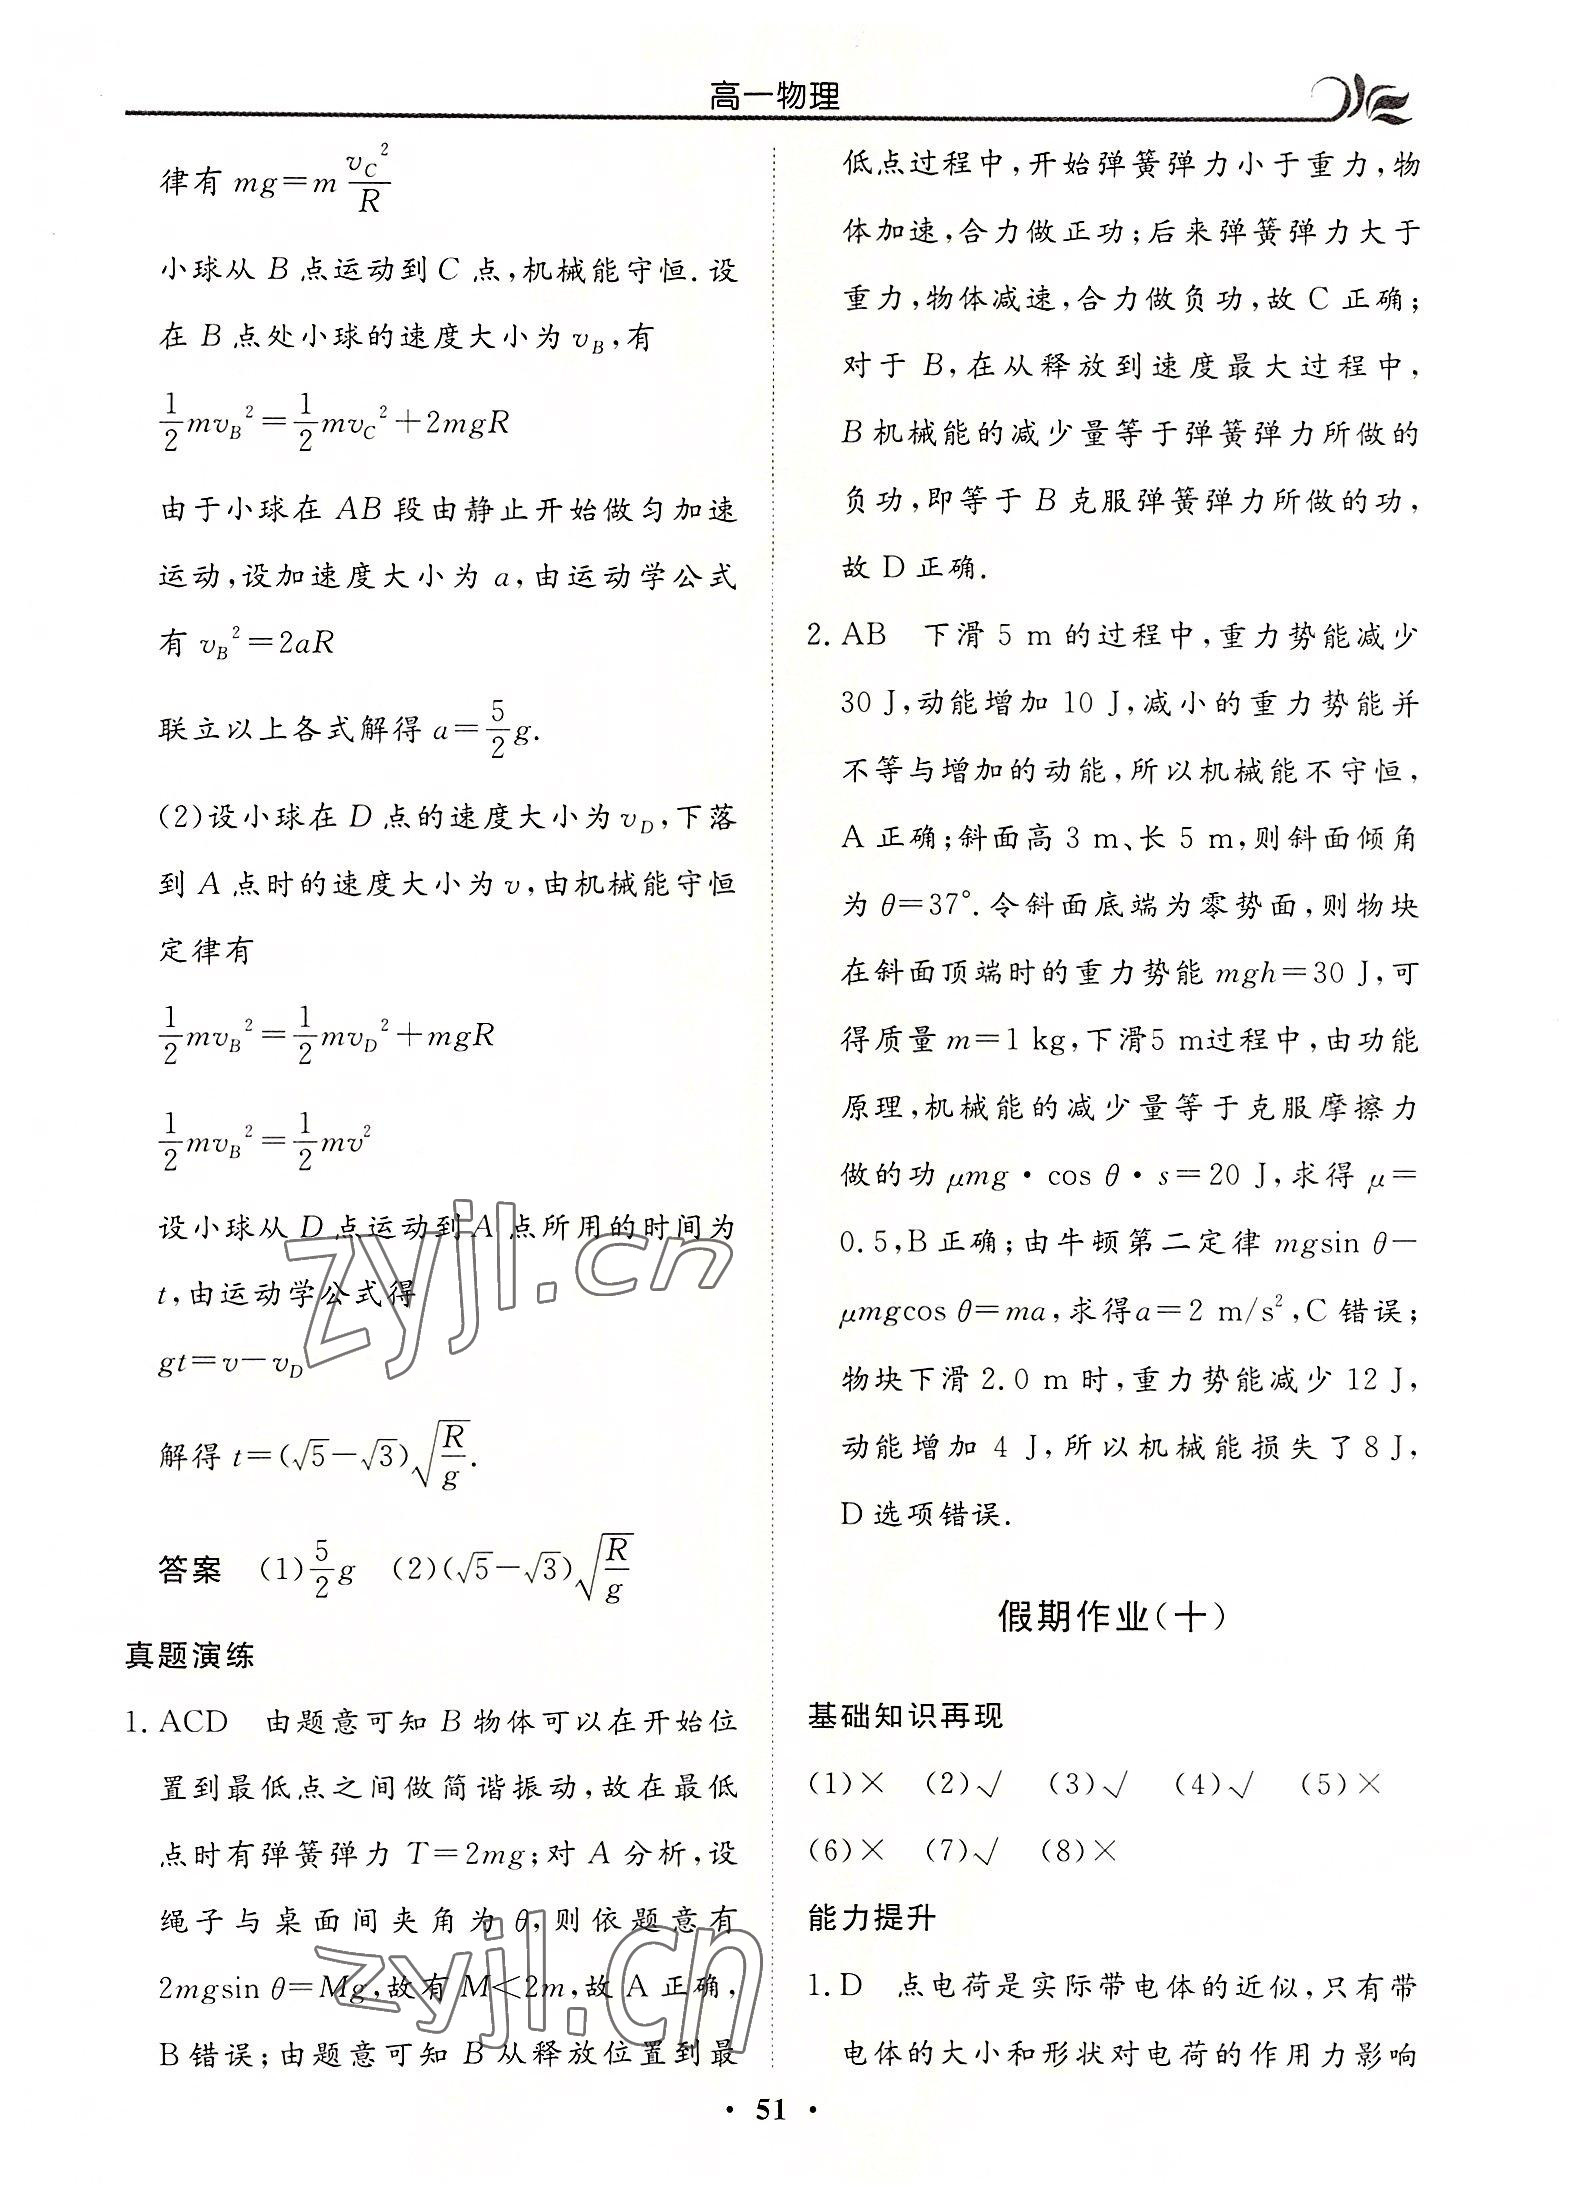 高一物理
律有 mg=m v_C²/R
小球从 B 点运动到 C 点,机械能守恒.设
在 B 点处小球的速度大小为 v_B,有
1/2 mv_B²=1/2 mv_C²+2mgR
由于小球在 AB 段由静止开始做匀加速
运动,设加速度大小为 a,由运动学公式
有 v_B²=2aR
联立以上各式解得 a=5/2 g.
(2)设小球在 D 点的速度大小为 v_D,下落
到 A 点时的速度大小为 v,由机械能守恒
定律有
1/2 mv_B²=1/2 mv_D²+mgR
1/2 mv_B²=1/2 mv²
设小球从 D 点运动到 A 点所用的时间为
t,由运动学公式得
gt=v-v_D
解得 t=(√5-√3)√(R/g).
答案 (1)5/2 g (2)(√5-√3)√(R/g)
真题演练
1. ACD 由题意可知 B 物体可以在开始位
置到最低点之间做简谐振动,故在最低
点时有弹簧弹力 T=2mg;对 A 分析,设
绳子与桌面间夹角为 θ,则依题意有
2mgsin θ=Mg,故有 M<2m,故 A 正确,
B 错误;由题意可知 B 从释放位置到最
低点过程中,开始弹簧弹力小于重力,物
体加速,合力做正功;后来弹簧弹力大于
重力,物体减速,合力做负功,故 C 正确;
对于 B,在从释放到速度最大过程中,
B 机械能的减少量等于弹簧弹力所做的
负功,即等于 B 克服弹簧弹力所做的功,
故 D 正确.
2. AB 下滑 5 m 的过程中,重力势能减少
30 J,动能增加 10 J,减小的重力势能并
不等与增加的动能,所以机械能不守恒,
A 正确;斜面高 3 m、长 5 m,则斜面倾角
为 θ=37°.令斜面底端为零势面,则物块
在斜面顶端时的重力势能 mgh=30 J,可
得质量 m=1 kg,下滑5 m过程中,由功能
原理,机械能的减少量等于克服摩擦力
做的功 μmg·cos θ·s=20 J,求得 μ=
0.5,B 正确;由牛顿第二定律 mgsin θ-
μmgcos θ=ma,求得a=2 m/s²,C 错误;
物块下滑 2.0 m 时,重力势能减少 12 J,
动能增加 4 J,所以机械能损失了 8 J,
D 选项错误.
假期作业(十)
基础知识再现
(1)× (2)√ (3)√ (4)√ (5)×
(6)× (7)√ (8)×
能力提升
1. D 点电荷是实际带电体的近似,只有带
电体的大小和形状对电荷的作用力影响
· 51 ·
zyjl.cn
zyjl.cn